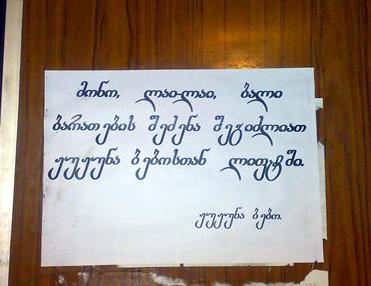 მონო, ლაი-ლაი, ბალი
ბარათების შეძენა შეგიძლიათ
ჟუჟუნა ბებოსთან ლიფტში.
ჟუჟუნა ბებო.